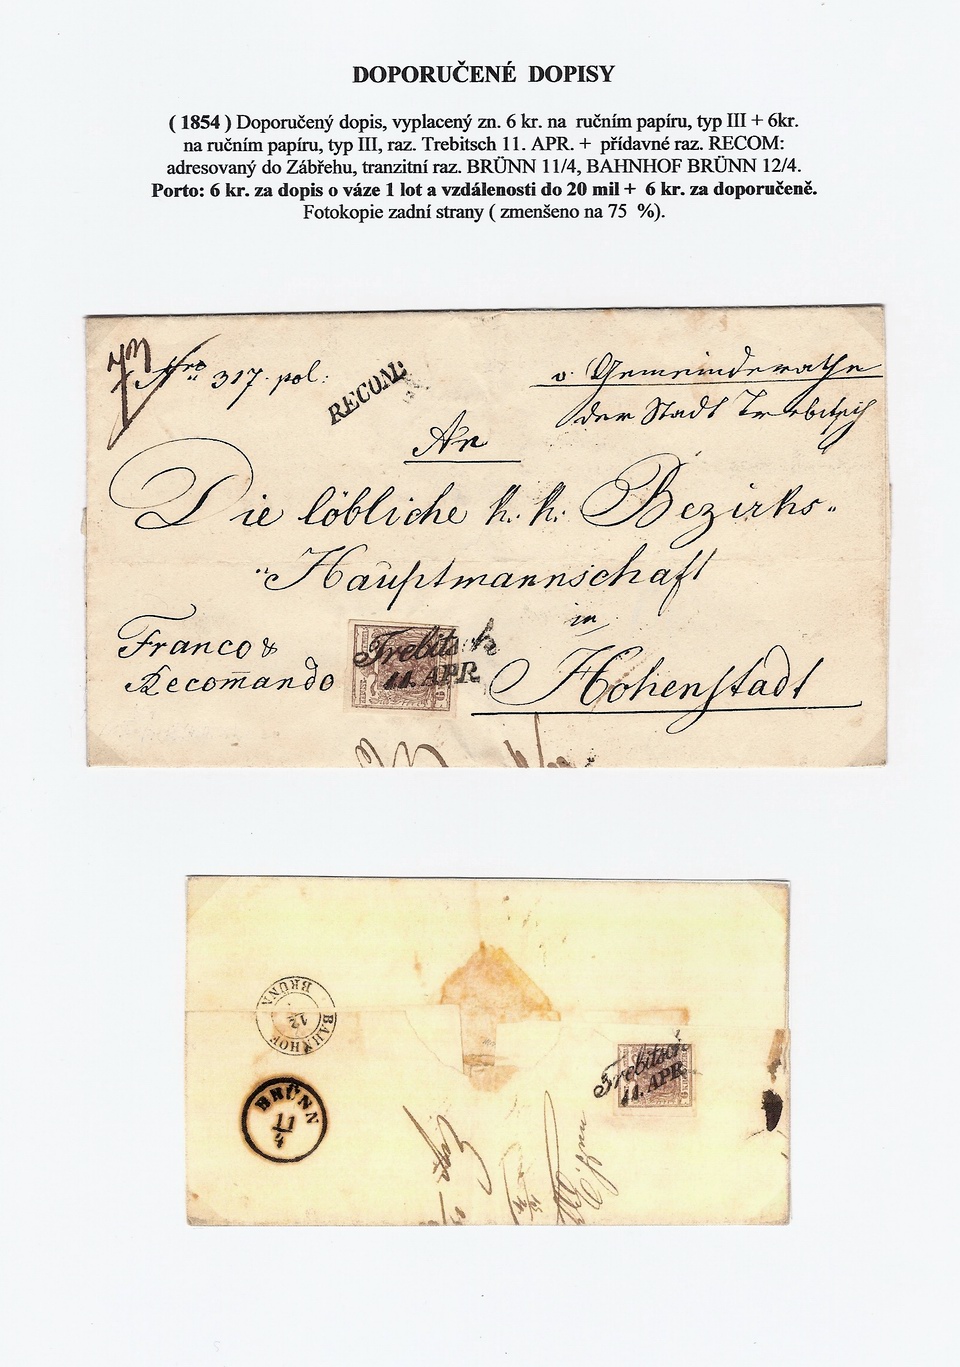 DOPORUČENÉ DOPISY
( 1854 ) Doporučený dopis, vyplacený zn. 6 kr. na ručním papíru, typ III + 6kr.
na ručním papíru, typ III, raz. Trebitsch 11. APR. + přídavné raz. RECOM:
adresovaný do Zábřehu, tranzitní raz. BRÜNN 11/4, BAHNHOF BRÜNN 12/4.
Porto: 6 kr. za dopis o váze 1 lot a vzdálenosti do 20 mil + 6 kr. za doporučeně.
Fotokopie zadní strany ( zmenšeno na 75 %).
Nro 317. pol:
RECOM:
v. Gemeinderathe
der Stadt Trebitsch
An
Die löbliche k. k. Bezirks-
Hauptmannschaft
in
Hohenstadt
Franco &
Recom̅ando
Trebitsch
11. APR.
BAHNHOF
BRÜNN
12
BRÜNN
11
4
Trebitsch
11. APR.